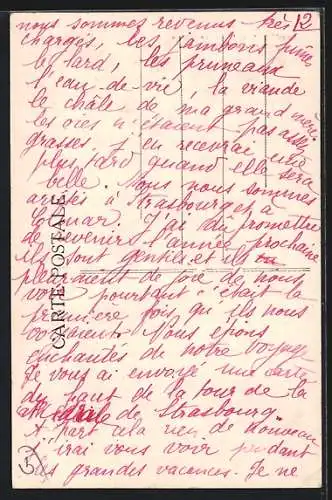 nous sommes revenus très
12
chargés, les jambons fumés
le lard, les pruneaux
l'eau-de-vie, la viande
le châle de ma grand'mère
les oies n'étaient pas assez
grasses. J'en recevrai une
plus tard quand elle sera
belle. Nous nous sommes
arrêtés à Strasbourg et à
Colmar. J'ai du promettre
de revenir l'année prochaine
ils sont gentils et ils
pleuraient de joie de nous
voir pourtant c'était la
première fois qu'ils nous
voyaient. Nous
enchantés de notre voyage
Je vous ai envoyé une carte
du haut de la tour de la
de Strasbourg.
A part cela rien de nouveau
J'irai vous voir pendant
les grandes vacances. Je ne
CARTE POSTALE